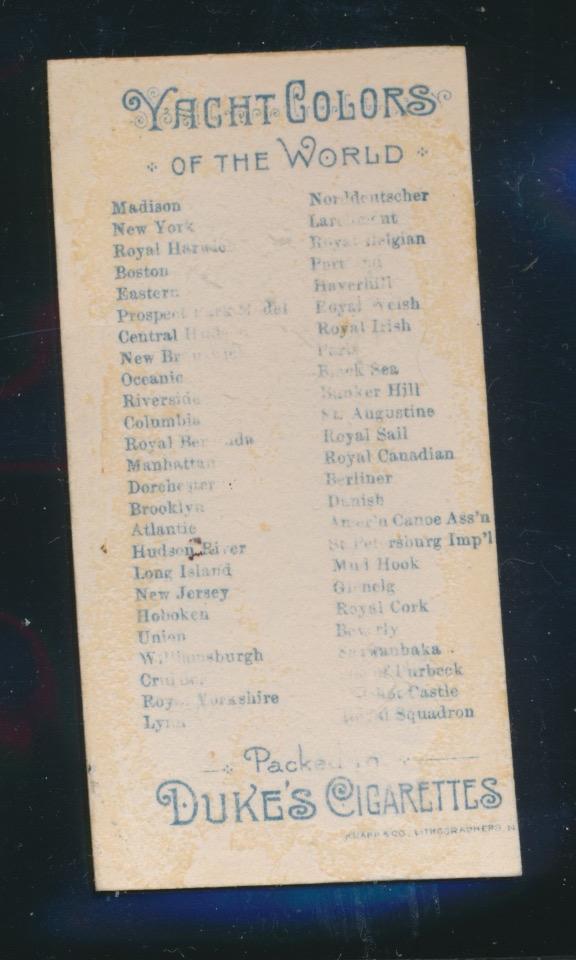 YACHT COLORS
OF THE WORLD
Madison
New York
Royal Harwich
Boston
Eastern
Prospect Park Model
Central Hudson
New Brunswick
Oceanic
Riverside
Columbia
Royal Bermuda
Manhattan
Dorchester
Brooklyn
Atlantic
Hudson River
Long Island
New Jersey
Hoboken
Union
Williamsburgh
Royal Yorkshire
Lynn
Norddeutscher
Larchmont
Royal Belgian
Portland
Haverhill
Royal Welsh
Royal Irish
Paris
Black Sea
Bunker Hill
St. Augustine
Royal Sail
Royal Canadian
Berliner
Danish
Amer'n Canoe Ass'n
St. Petersburg Imp'l
Mud Hook
Glenelg
Royal Cork
Beverly
Seawanhaka
of Purbeck
Castle
Royal Squadron
Packed in
DUKE'S CIGARETTES
KNAPP & CO., LITHOGRAPHERS, N